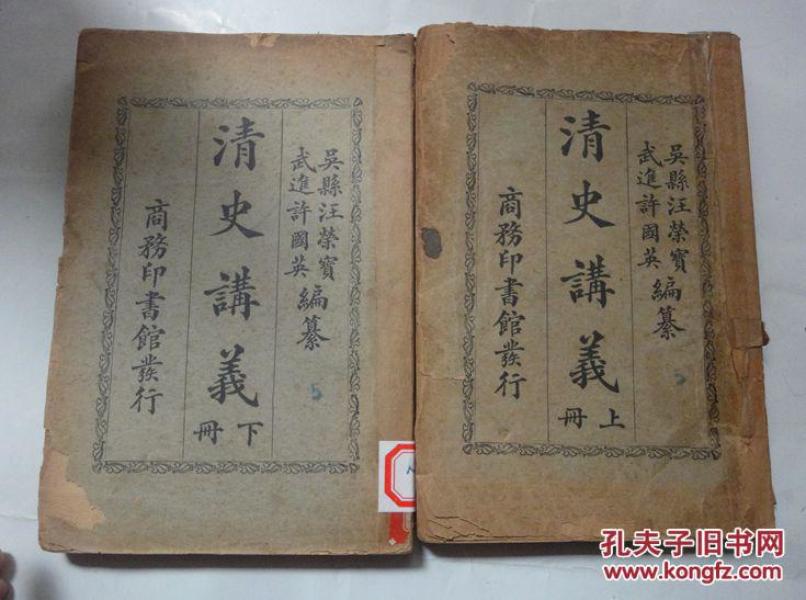 吳縣汪榮寶
武進許國英
編纂
清史講義
上冊
商務印書館發行
吳縣汪榮寶
武進許國英
編纂
清史講義
下冊
商務印書館發行
5
5
孔夫子旧书网
www.kongfz.com